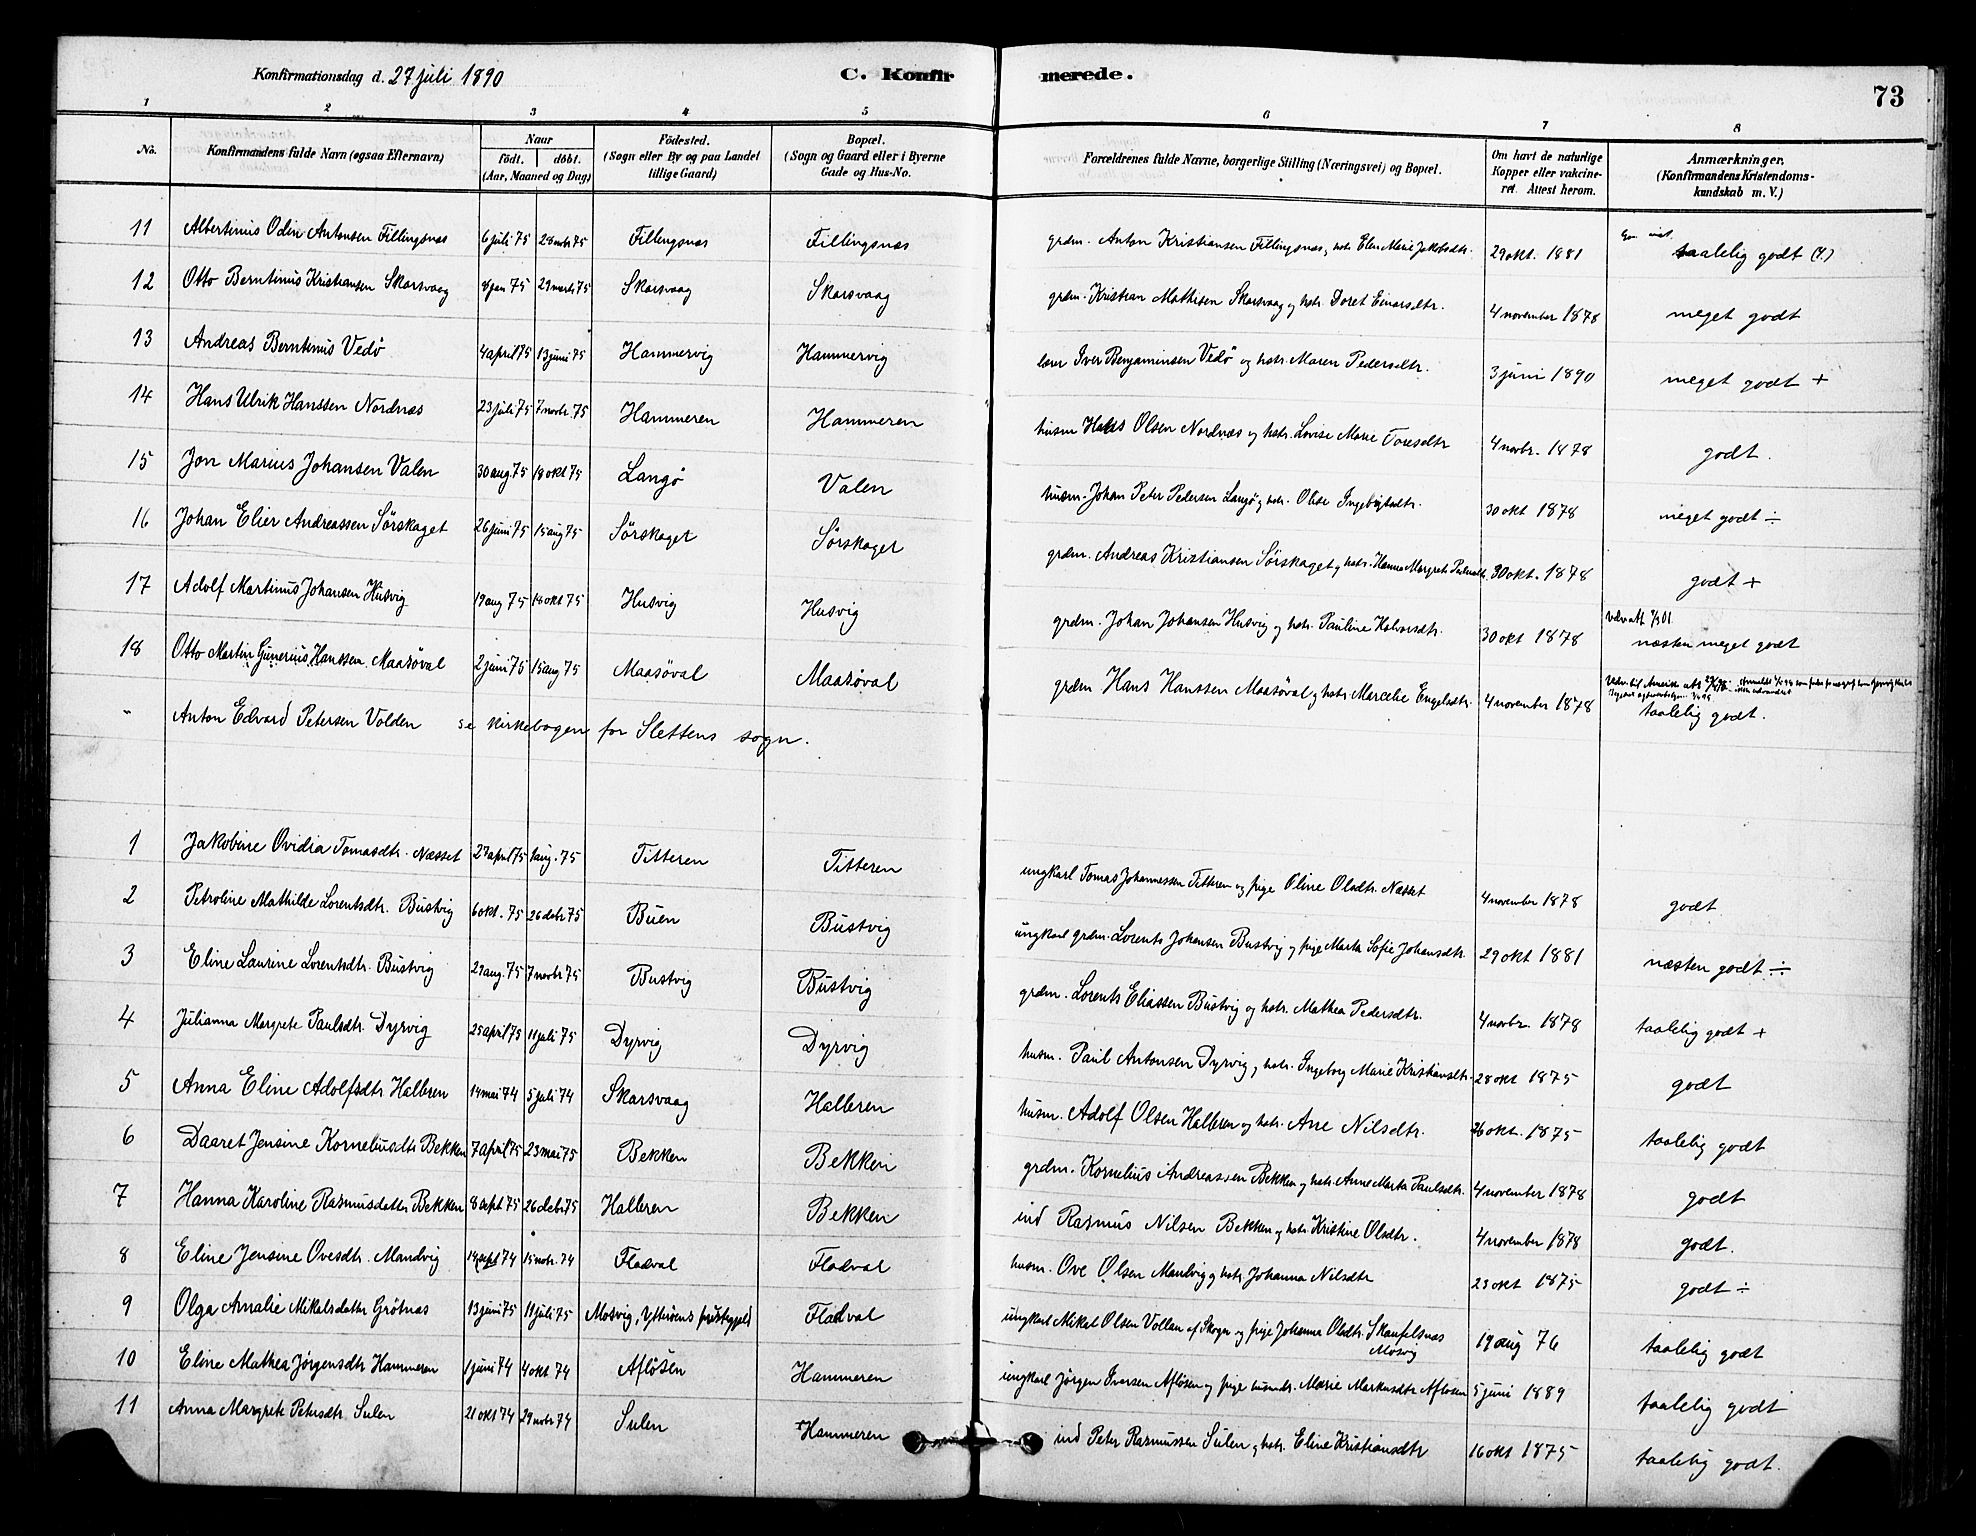 Konfirmationsdag d. 27 juli 1890
C. Konfirmerede.
73
1 2 3 4 5 6 7 8
No. Konfirmandens fulde Navn (ogsaa Efternavn) Naar født. døbt. (Aar, Maaned og Dag) Födested. (Sogn eller By og paa Landet tillige Gaard) Bopæl. (Sogn og Gaard eller i Byerne Gade og Hus-No. Forældrenes fulde Navne, borgerlige Stilling (Næringsvei) og Bopæl. Om havt de naturlige Kopper eller vakcineret. Attest herom. Anmærkninger. (Konfirmandens Kristendomskundskab m. V.)
11 Albertinus Odin Antonsen Fillingsnæs 6 juli 75 28 novbr 75 Fillingsnæs Fillingsnæs grdm. Anton Kristiansen Fillingsnæs, hstr. Elen Marie Jakobsdtr. 29 okt. 1881 taalelig godt
12 Otto Berntinus Kristiansen Skarsvaag jan 75 29 marts 75 Skarsvaag Skarsvaag grdm. Kristian Mathisen Skarsvaag og hstr. Doret Einarsdtr. 4 november 1878 meget godt
13 Andreas Berntinus Vedø 4 april 75 13 juni 75 Hammervig Hammervig lærer Iver Benjaminsen Vedø og hstr. Maren Pedersdtr. 3 juni 1890 meget godt +
14 Hans Ulrik Hanssen Nordnæs 23 juli 75 7 novbr. 75 Hammeren Hammeren husm Hans Olsen Nordnæs og hstr. Lovise Marie Toresdtr 4 novbr. 1878 godt.
15 Jon Marius Johansen Valen 30 aug. 75 18 okt 75 Langø Valen husm. Johan Peter Pedersen Langø og hstr. Oline Ingebrigtsdtr. 30 okt 1878 meget godt ÷
16 Johan Elier Andreassen Sørskaget 26 juni 75 15 aug 75 Sørskaget Sørskaget grdm. Andreas Kristiansen Sørskaget og hstr. Hanna Margrete 30 okt. 1878 godt +
17 Adolf Martinus Johansen Husvig 19 aug 75 18 okt 75 Husvig Husvig grdm. Johan Johansen Husvig og hstr. Pauline Halvorsdtr. 30 okt 1878 næsten meget godt
18 Otto Martin Gunerius Hanssen Maasøval 2 juni 75 15 aug 75 Maasøval Maasøval grdm Hans Hanssen Maasøval og hstr Marcelie Engelsdtr. 4 november 1878 taalelig godt.
" Anton Edvard Petersen Volden se kirkebogen for Slettens sogn.
1 Jakobine Ovidia Tomasdtr. Næsset 27 april 75 1 aug. 75 Titteren Titteren ungkarl Tomas Johannessen Titteren og pige Oline Olsdtr. Næsset 4 november 1878 godt
2 Petroline Mathilde Lorentsdtr. Bustvig 6 okt. 75 26 debr 75 Buen Bustvig ungkarl grdm. Lorents Johansen Bustvig og pige Marta Sofie Johansdtr. 29 okt 1881 næsten godt ÷
3 Eline Laurine Lorentsdtr. Bustvig 29 aug. 75 7 novbr 75 Bustvig Bustvig grdm. Lorents Eliassen Bustvig og hstr. Mathea Pedersdtr. 4 novbr. 1878 taalelig godt +
4 Julianna Margrete Paulsdtr. Dyrvig 25 april 75 11 juli 75 Dyrvig Dyrvig husm. Paul Antonsen Dyrvig, hstr. Ingeborg Marie Kristiansdtr. 28 okt 1875 godt
5 Anna Eline Adolfsdtr Halleren 14 mai 74 5 juli 74 Skarsvaag Halleren husm. Adolf Olsen Halleren og hstr. Ane Nilsdtr. 26 okt. 1875 taalelig godt
6 Daaret Jensine Korneliusdtr Bekken 7 april 75 23 mai 75 Bekken Bekken grdm. Kornelius Andreassen Bekken og hstr. Anne Marta Paulsdtr. 4 november 1878 godt
7 Hanna Karoline Rasmusdatter Bekken 8 sept 75 26 debr 75 Halleren Bekken ind Rasmus Nilsen Bekken og hstr. Kristine Olsdtr. 4 november 1878 godt.
8 Eline Jensine Ovesdtr. Mandvig 14 sept 74 15 nobr. 74 Fladval Fladval husm. Ove Olsen Mandvig og hstr. Johanna Nilsdtr 23 okt 1875 godt ÷
9 Olga Amalie Mikalsdatter Grøtnæs 13 juni 75 11 juli 75 Mosvig, Ytterøens præstegjeld Fladval ungkarl Mikal Olsen Vollan af Skogn og pige Johanna Olsdtr. Skaufelsnæs Mosvig 19 aug 76 taalelig godt
10 Eline Mathea Jørgensdtr Hammeren 1 juni 74 4 okt 74 Afløsen Hammeren ungkarl Jørgen Iversen Afløsen og pige Marie Markusdtr Afløsen 5 juni 1889 taalelig godt
11 Anna Margrete Petersdtr Sulen 21 okt 74 29 nobr 74 Sulen Hammeren ind Peter Rasmussen Sulen og hstr. Eline Kristiansdtr 16 okt 1875 taalelig godt.